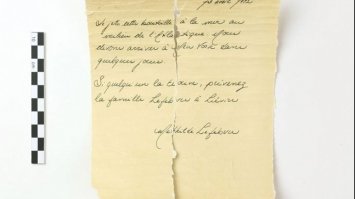 avril 1912
Je jette cette bouteille à la mer au
milieu de l'Atlantique. Nous
devons arriver à New York dans
quelques jours.
Si quelqu'un la trouve, prévenez
la famille Lefebvre à Liévin
Mathilde Lefebvre